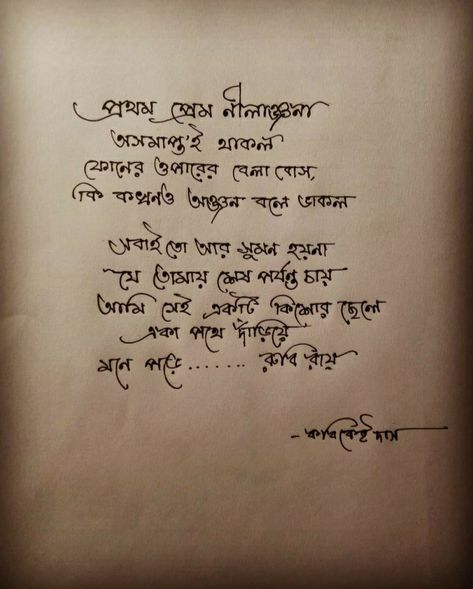 প্রথম প্রেম নীলাঞ্জনা
অসমাপ্ত'ই থাকল
ফোনের ওপারের বেলা বোস,
কি কখনও অঞ্জন বলে ডাকল
সবাই তো আর সুমন হয়না
যে তোমায় শেষ পর্যন্ত চায়
আমি সেই একটি কিশোর ছেলে
একা পথে দাঁড়িয়ে
মনে পড়ে....... রুবি রায়